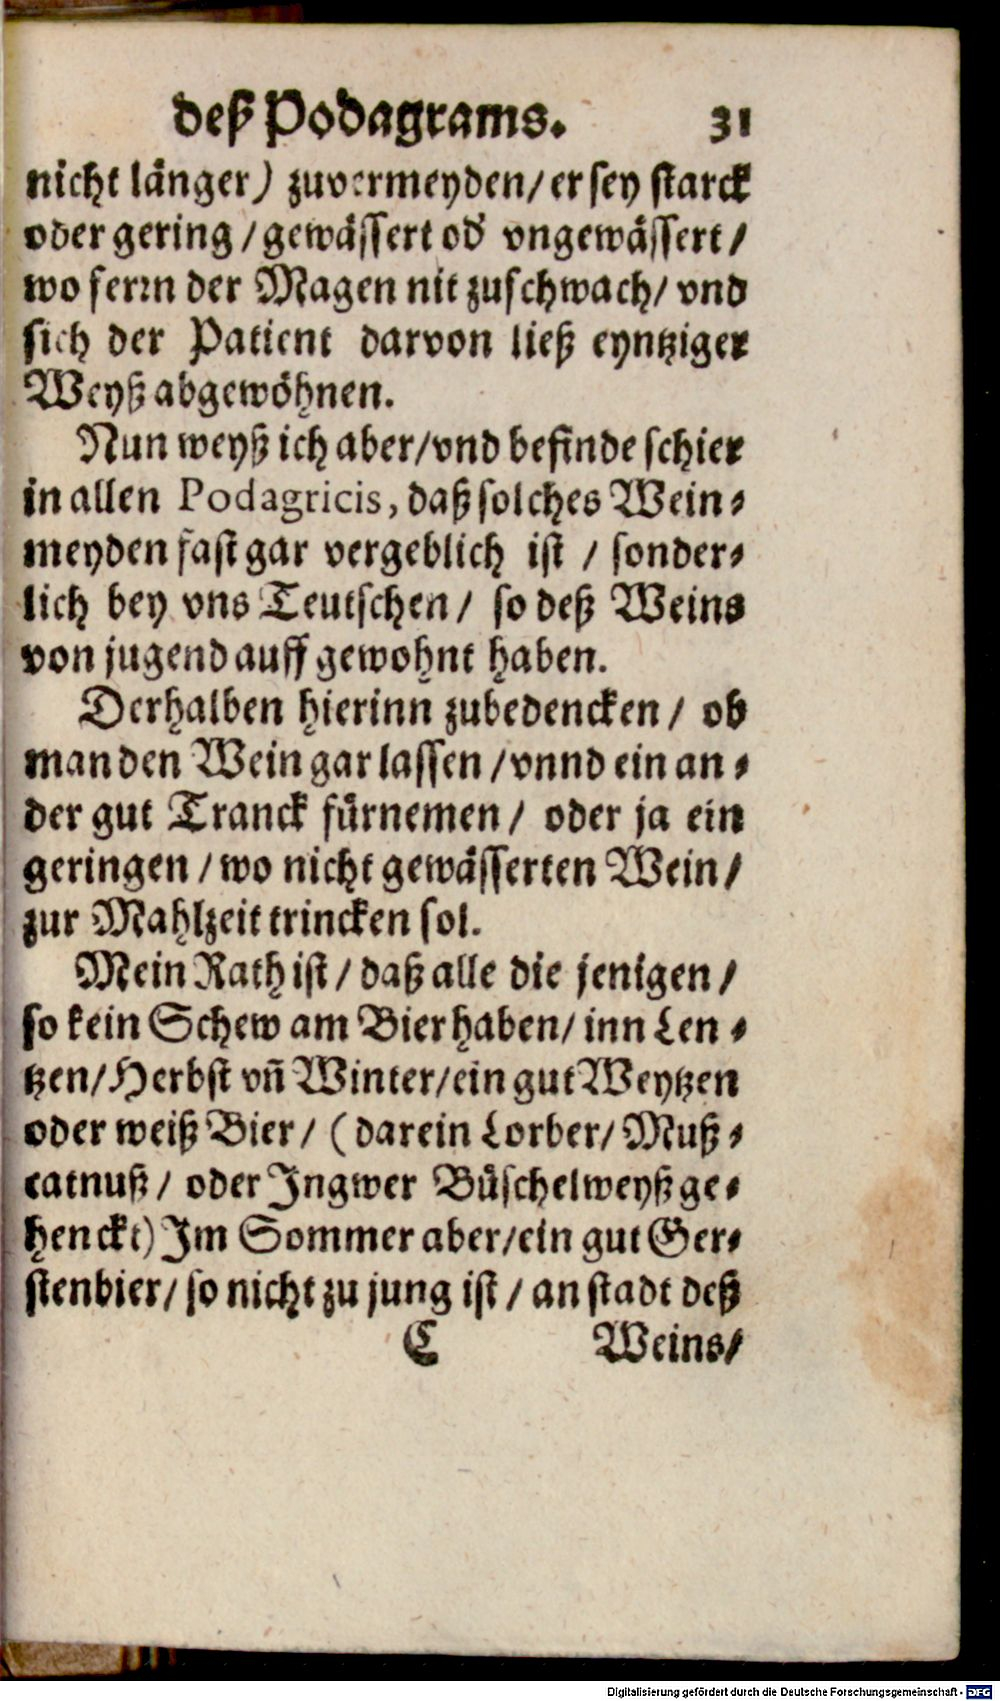 deß Podagrams. 31
nicht länger) zuvermeyden/ er sey starck
oder gering / gewässert od' vngewässert /
wo ferrn der Magen nit zuschwach/ vnd
sich der Patient darvon ließ eyntziger
Weyß abgewöhnen.
Nun weyß ich aber/vnd befinde schier
in allen Podagricis, daß solches Wein⸗
meyden fast gar vergeblich ist / sonder⸗
lich bey vns Teutschen / so deß Weins
von jugend auff gewohnt haben.
Derhalben hierinn zubedencken / ob
man den Wein gar lassen / vnnd ein an⸗
der gut Tranck fürnemen / oder ja ein
geringen / wo nicht gewässerten Wein /
zur Mahlzeit trincken sol.
Mein Rath ist / daß alle die jenigen /
so kein Schew am Bier haben/ inn Len⸗
tzen/ Herbst vñ Winter/ein gut Weytzen
oder weiß Bier / (darein Lorber/ Muß⸗
catnuß / oder Ingwer Büschelweyß ge⸗
henckt) Im Sommer aber/ein gut Ger⸗
stenbier / so nicht zu jung ist / an stadt deß
C Weins/
Digitalisierung gefördert durch die Deutsche Forschungsgemeinschaft - DFG